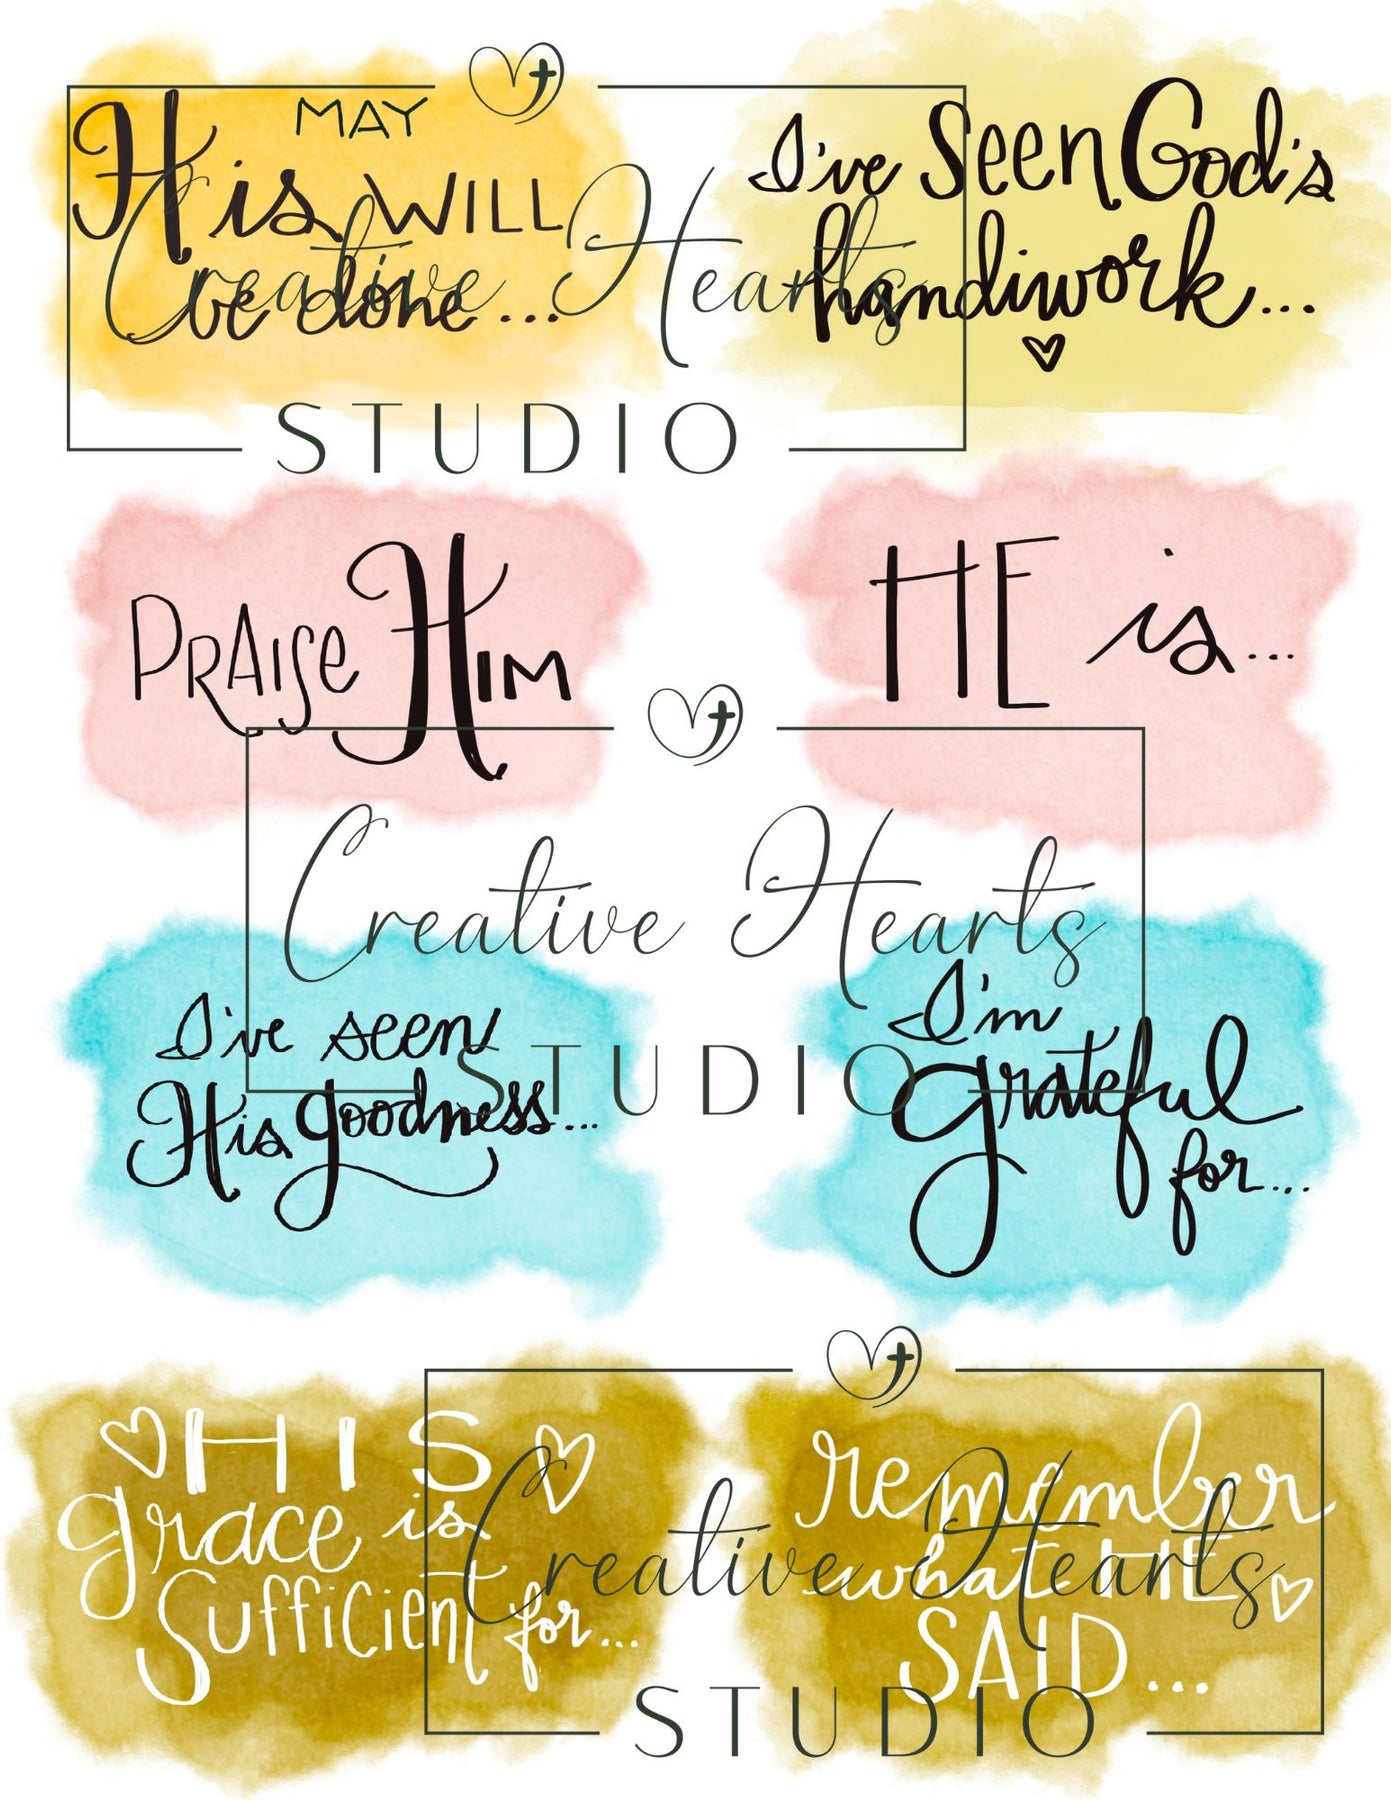 MAY
His WILL
be done...
I've seen God's
handiwork...
Creative Hearts
STUDIO
PRAISE HIM
HE is...
Creative Hearts
STUDIO
I've seen
His goodness...
I'm
grateful
for...
HIS
grace is
Sufficient for...
remember
what HE
SAID...
Creative Hearts
STUDIO